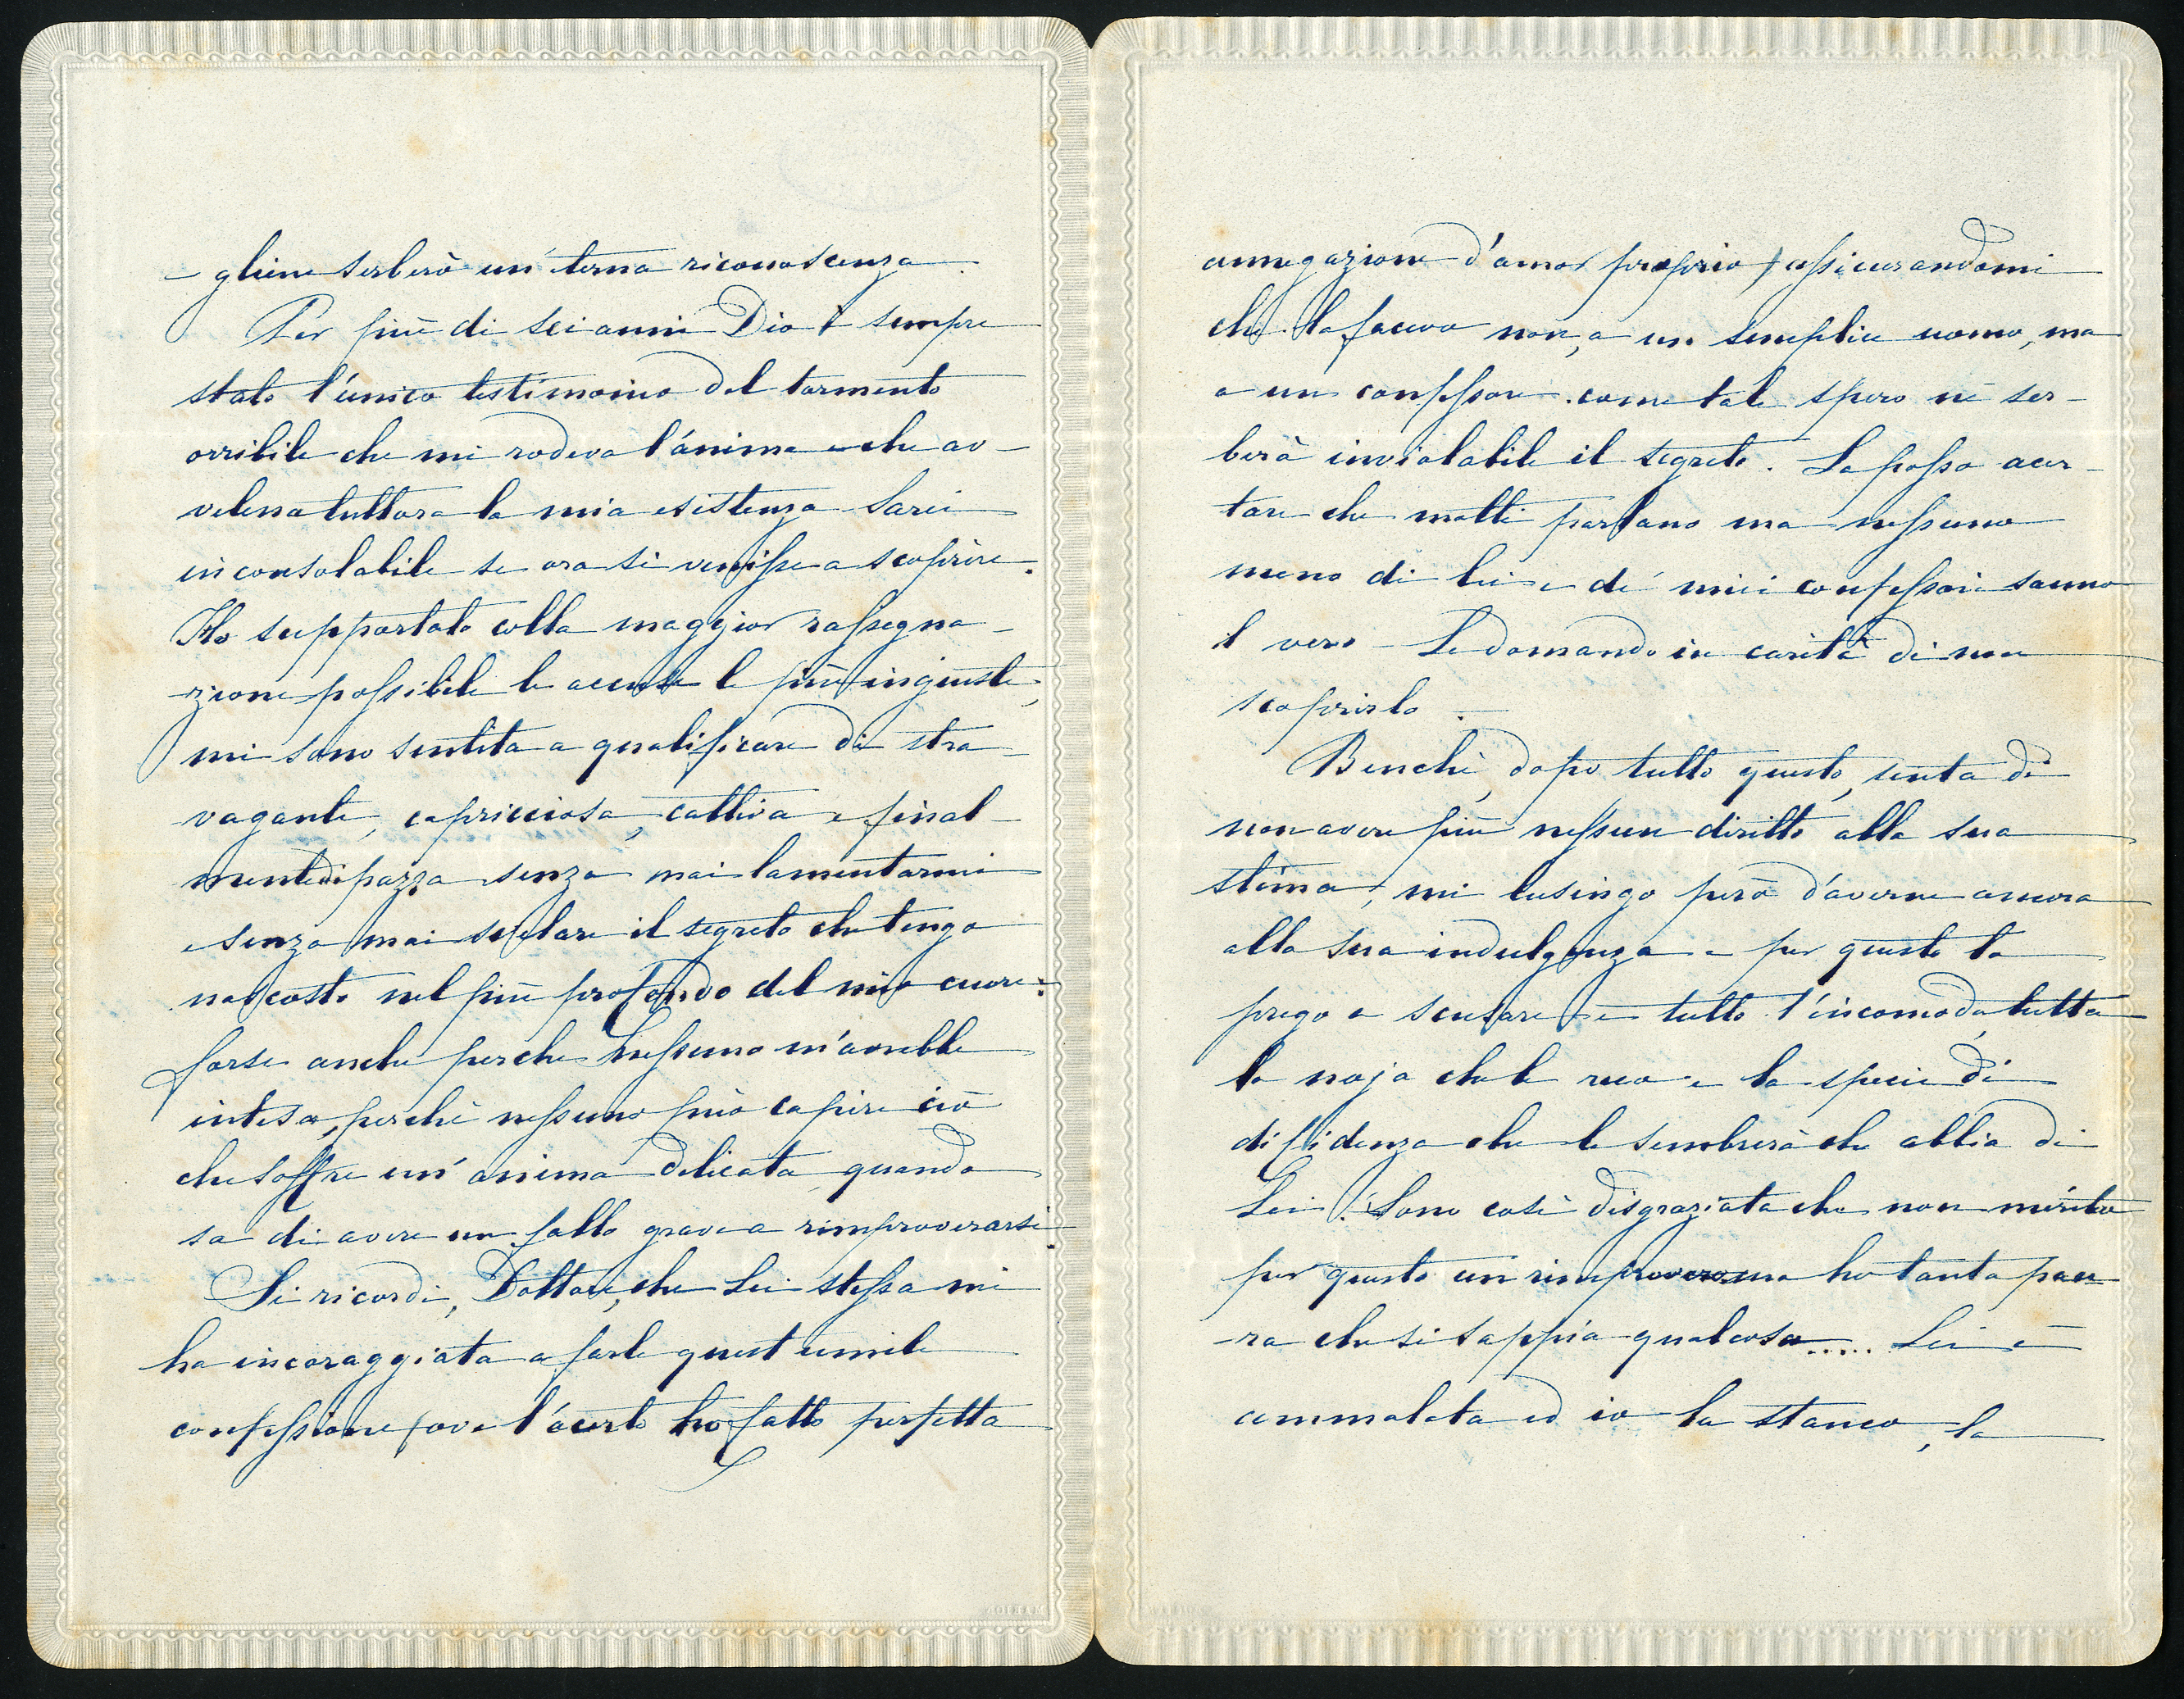 - gliene serberò un'terna riconoscenza.
Per più di sei anni Dio è sempre
stato l'unico testimonio del tormento
orribile che mi rodeva l'ánima e che av-
velena tuttora la mia esistenza sarei
inconsolabile se ora si venisse a scoprire.
Ho supportato colla maggior rassegna-
-zione possibile le accuse le più ingiuste,
mi sono sentita a qualificare di stra-
vagante, capricciosa, cattiva e final-
mente di pazza senza mai lamentarmi
e senza mai svelare il segreto che tengo
nascosto nel più profondo del mio cuore:
forse anche perche nessuno m'avrebbe
intesa, perchè nessuno può capire ciò
che soffre un'anima delicata quando
sa di avere un fallo grave a rimproverarsi.
Si ricordi, Dottore, che Lei stessa mi
ha incoraggiata a farle quest umile
confessione (ove l'accerto ho fatto perfetta
annegazione d'amor proprio) assicurandomi
che la facevo non, a un semplice uomo, ma
a un confessore. come tale spero ne ser-
berà inviolabile il segreto. La posso accer-
tare che molti parlano ma nessuno
meno di lei e de' miei confessori sanno
il vero - Le domando in carità di non
scoprirlo.
Benchè, dopo tutto questo, senta di
non avere più nessun diritto alla sua
stima, mi lusingo però d'averne ancora
alla sua indulgenza e per questo la
prego a scusare e tutto l'incomodo, tutta
la noja che le reco e la specie di
diffidenza che le sembrerà che abbia di
Lei! Sono così disgraziata che non mérito
per questo un rimprovero ma ho tanta pau-
-ra che si sappia qualcosa..... Lei è
ammalata ed io la stanco, la